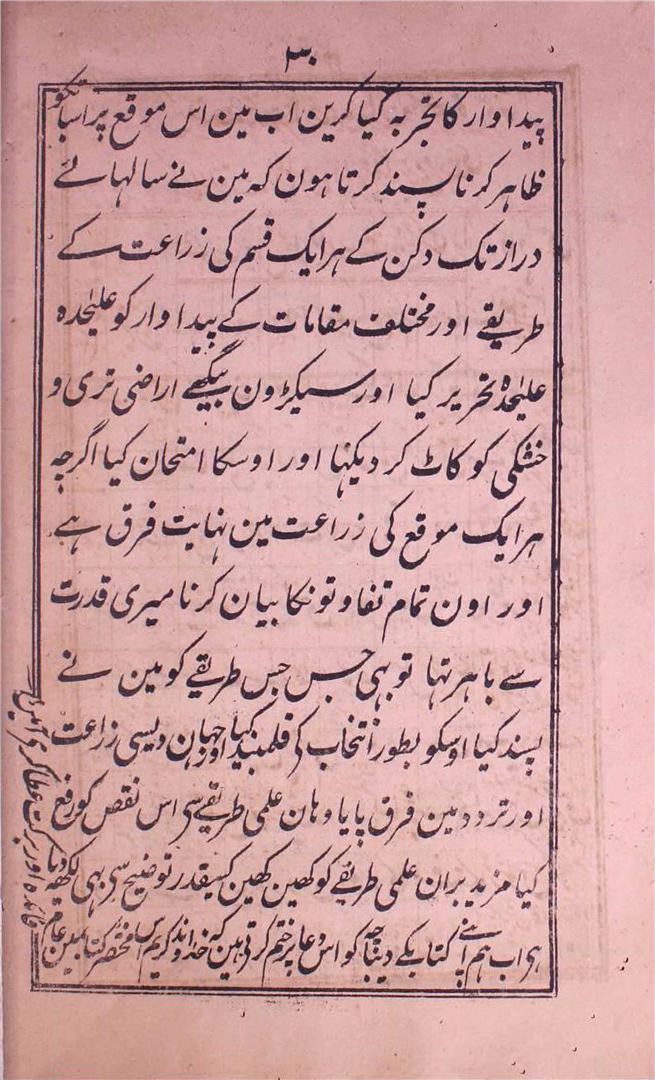 ۳۰
پیداوار کا تجربہ کیا کرین اب مین اس موقع پر اسباتکو
ظاہر کرنا پسند کرتا ہون کہ مین نے سالہائے
دراز تک دکن کے ہر ایک قسم کی زراعت کے
طریقے اور مختلف مقامات کے پیداوار کو علیٰحدہ
علیٰحدہ تحریر کیا اور سیکڑون بیگھے اراضی تری و
خشکی کو کاٹ کر دیکہا اور اوسکا امتحان کیا اگرچہ
ہر ایک موقع کی زراعت مین نہایت فرق ہے
اور اون تمام تفاوتونکا بیان کرنا میری قدرت
سے باہر تہا تو بہی جس جس طریقے کو مین نے
پسند کیا اوسکو بطور انتخاب کے قلمبند کیا اور جہان دیسی زراعت
اور تردد مین فرق پایا وہان علمی طریقے سی اس نقص کو رفع
کیا مزید بران علمی طریقے کو کہین کہین کسیقدر توضیح سی بہی لکھدیا
ہی اب ہم اپنے کتاب کے دیباچہ کو اس دعا پر ختم کرتی ہین کہ خداوند کریم اس مختصر کتاب مین عام
فائدہ اور برکت عطا کری آمین